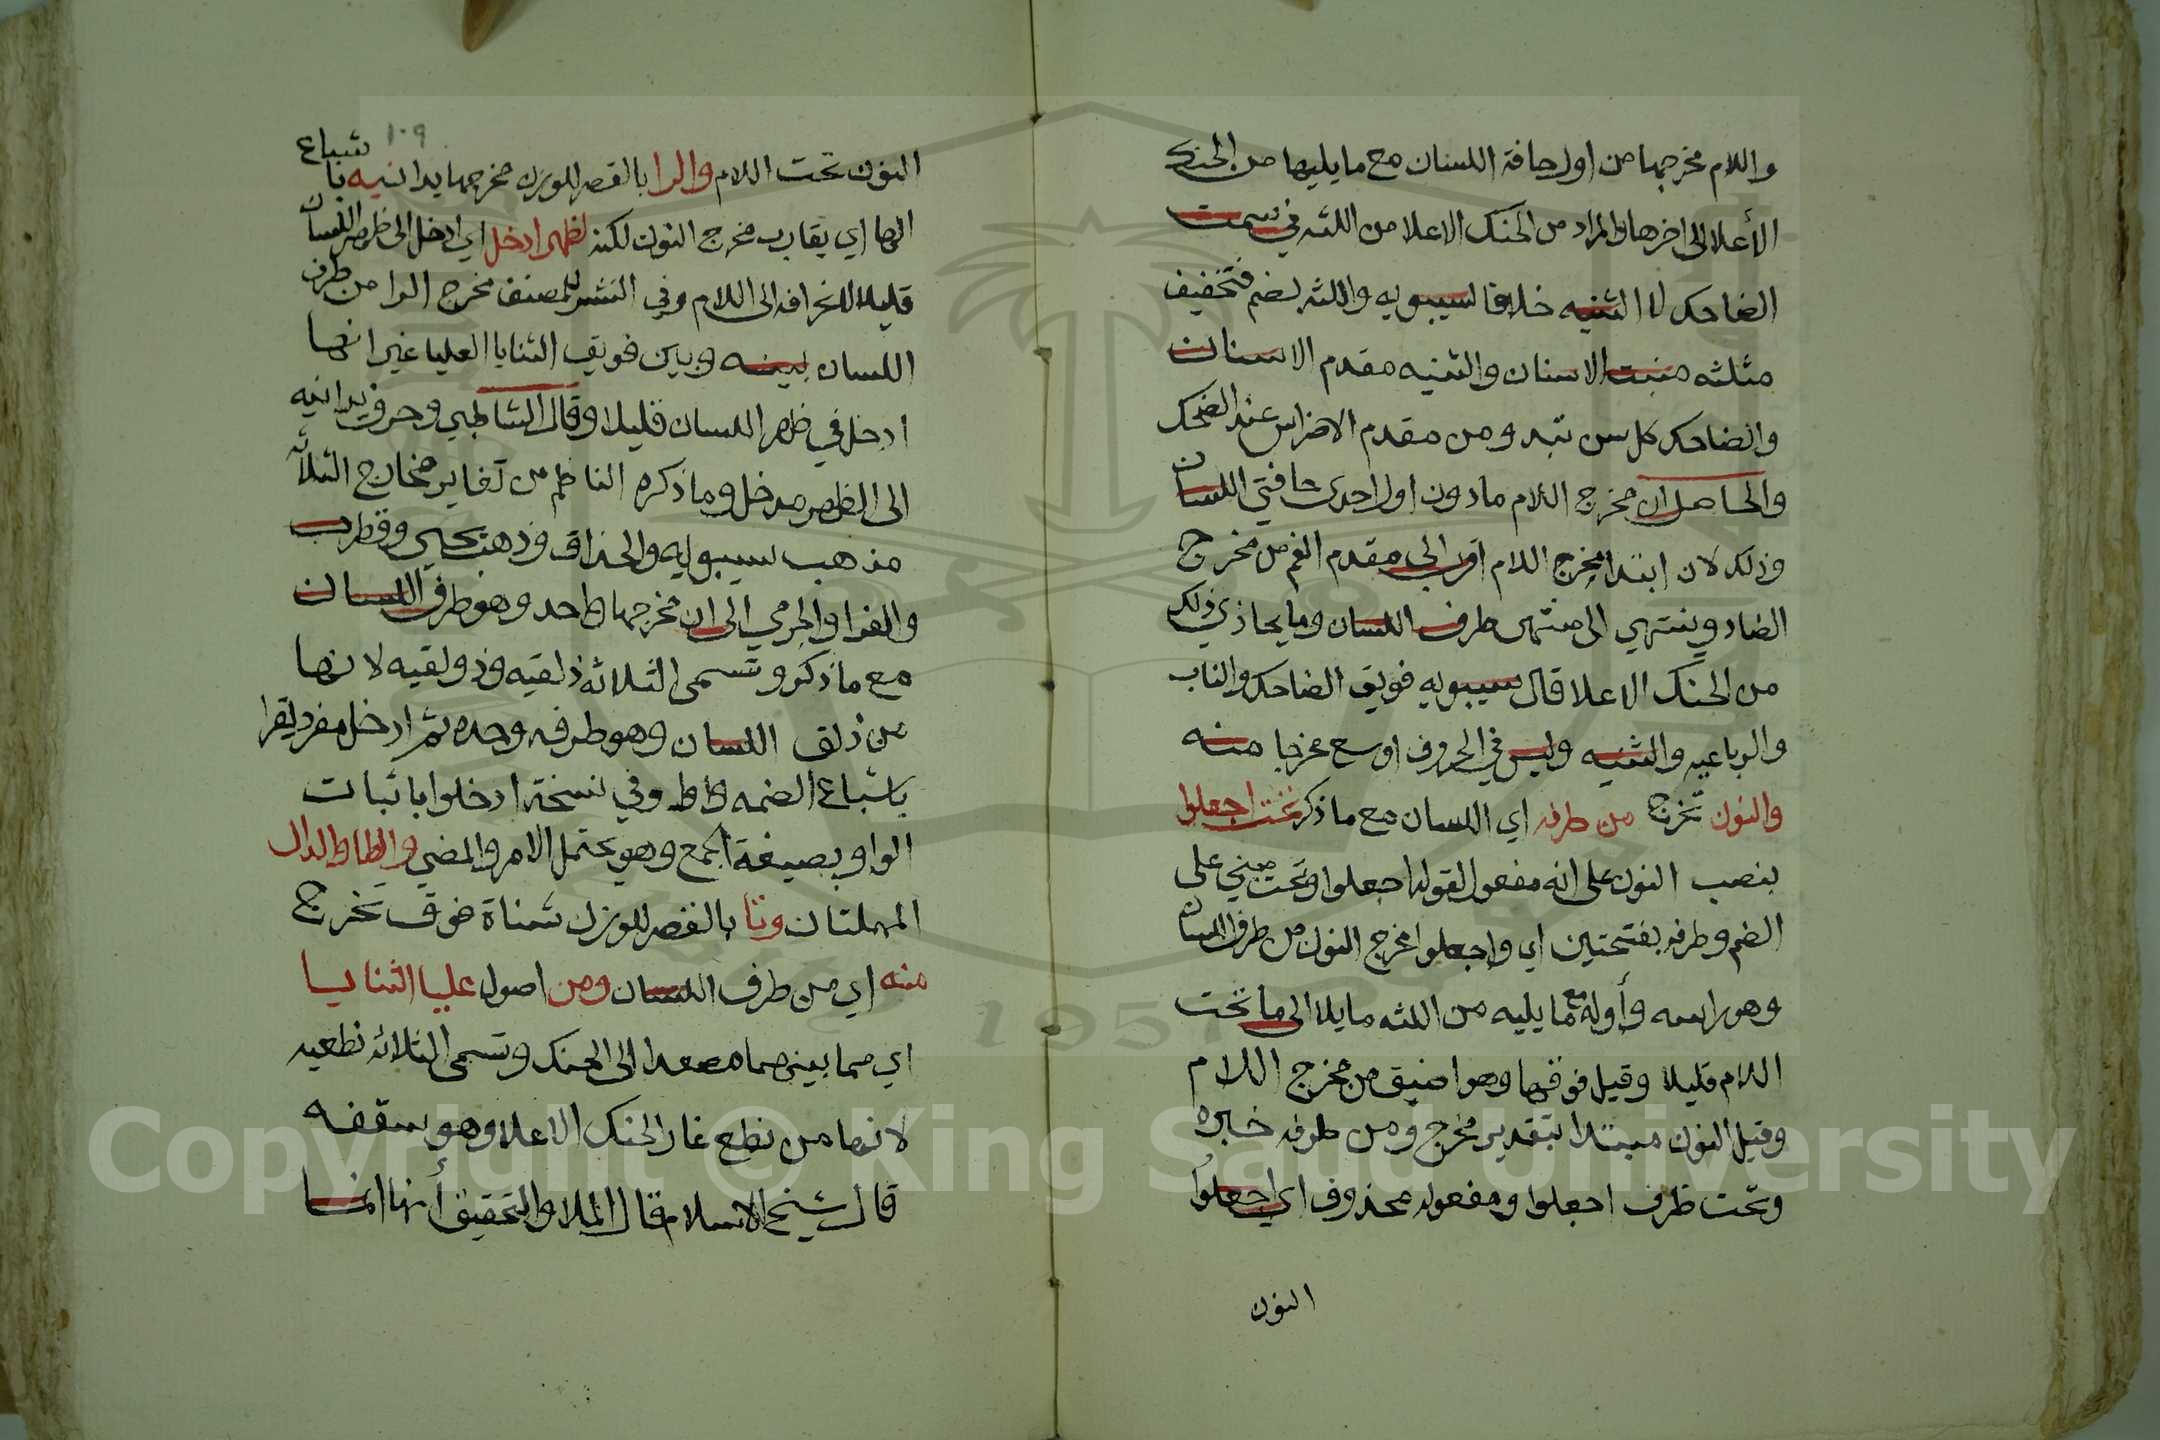 واللام مخرجها من اول حافة اللسان مع ما يليها من الحنك
الأعلا الى اخرها والمراد من الحنك الاعلا من اللثه في سمت
الضاحك لا الثنيه خلافا لسيبويه واللثه بضم فتخفيف
مثلثه منبت الاسنان والثنيه مقدم الاسنان
والضاحك كل سن تبدو من مقدم الاضراس عند الضحك
والحاصل ان مخرج اللام ما دون اول احدى حافتي اللسان
وذلك لان ابتدا مخرج اللام اقرب الى مقدم الفم من مخرج
الضاد وينتهي الى منتهى طرف اللسان وما يحاذي ذلك
من الحنك الاعلا قال سيبويه فويق الضاحك والناب
والرباعيه والثنيه وليس في الحروف اوسع مخرجا منه
والنون تخرج من طرفه اي اللسان مع ما ذكر تحت اجعلوا
بنصب النون على انه مفعول لقوله اجعلوا وتحت مبني على
الضم وطرفه بفتحتين اي واجعلوا مخرج النون من طرف اللسان
وهو راسه وأوله مع ما يليه من اللثه مايلا الى ما تحت
اللام قليلا وقيل فوقها وهو اضيق من مخرج اللام
وقيل النون مبتدا بتقدير مخرج ومن طرفه خبره
وتحت ظرف اجعلوا ومفعوله محذوف اي اجعلوا
النون
١٠٩
النون تحت اللام والرا بالقصر للوزن مخرجها يدانيه باشباع
الها اي يقارب مخرج النون لكنه لظهر ادخل اي ادخل الى ظهر اللسان
قليلا لانحرافه الى اللام وفي النشر للمصنف مخرج الرا من طرف
اللسان بينه وبين فويق الثنايا العليا غير انها
ادخل في ظهر اللسان قليلا وقال الشاطبي وحرف يدانيه
الى الظهر مدخل وما ذكره الناظم من تغاير مخارج الثلاثه
مذهب سيبويه والحذاق وذهب يحيى وقطرب
والفرا والجرمي الى ان مخرجها واحد وهو طرف اللسان
مع ما ذكر وتسمى الثلاثه ذلقيه وذولقيه لانها
من ذلق اللسان وهو طرفه وحده ثم ادخل مفرد يقرا
باشباع الضمه واوا وفي نسخة ادخلوا باثبات
الواو بصيغة الجمع وهو يحتمل الامر والمضي والطا والدال
المهملتان وتا بالقصر للوزن مثناة فوق تخرج
منه اي من طرف اللسان ومن اصول عليا الثنايا
اي مما بينهما مصعدا الى الحنك وتسمى الثلاثه نطعيه
لانها من نطع غار الحنك الاعلا وهو سقفه
قال شيخ الاسلام قال الملا والتحقيق أنها انما
Copyright © King Saud University
1957